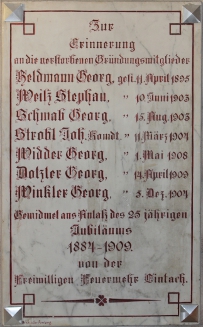 Zur
Erinnerung
an die verstorbenen Gründungsmitglieder
Heldmann Georg, gest. 11. April 1895
Weiß Stephan, " 10. Juni 1903
Schwab Georg, " 15. Aug. 1903
Strobl Joh. Komdt. " 11. März 1904
Widder Georg, " 1. Mai 1908
Dotzler Georg, " 14. April 1909
Winkler Georg, " 5. Dez. 1904
Gewidmet aus Anlaß des 25 jährigen
Jubiläums
1884-1909.
von der
Freiwilligen Feuerwehr